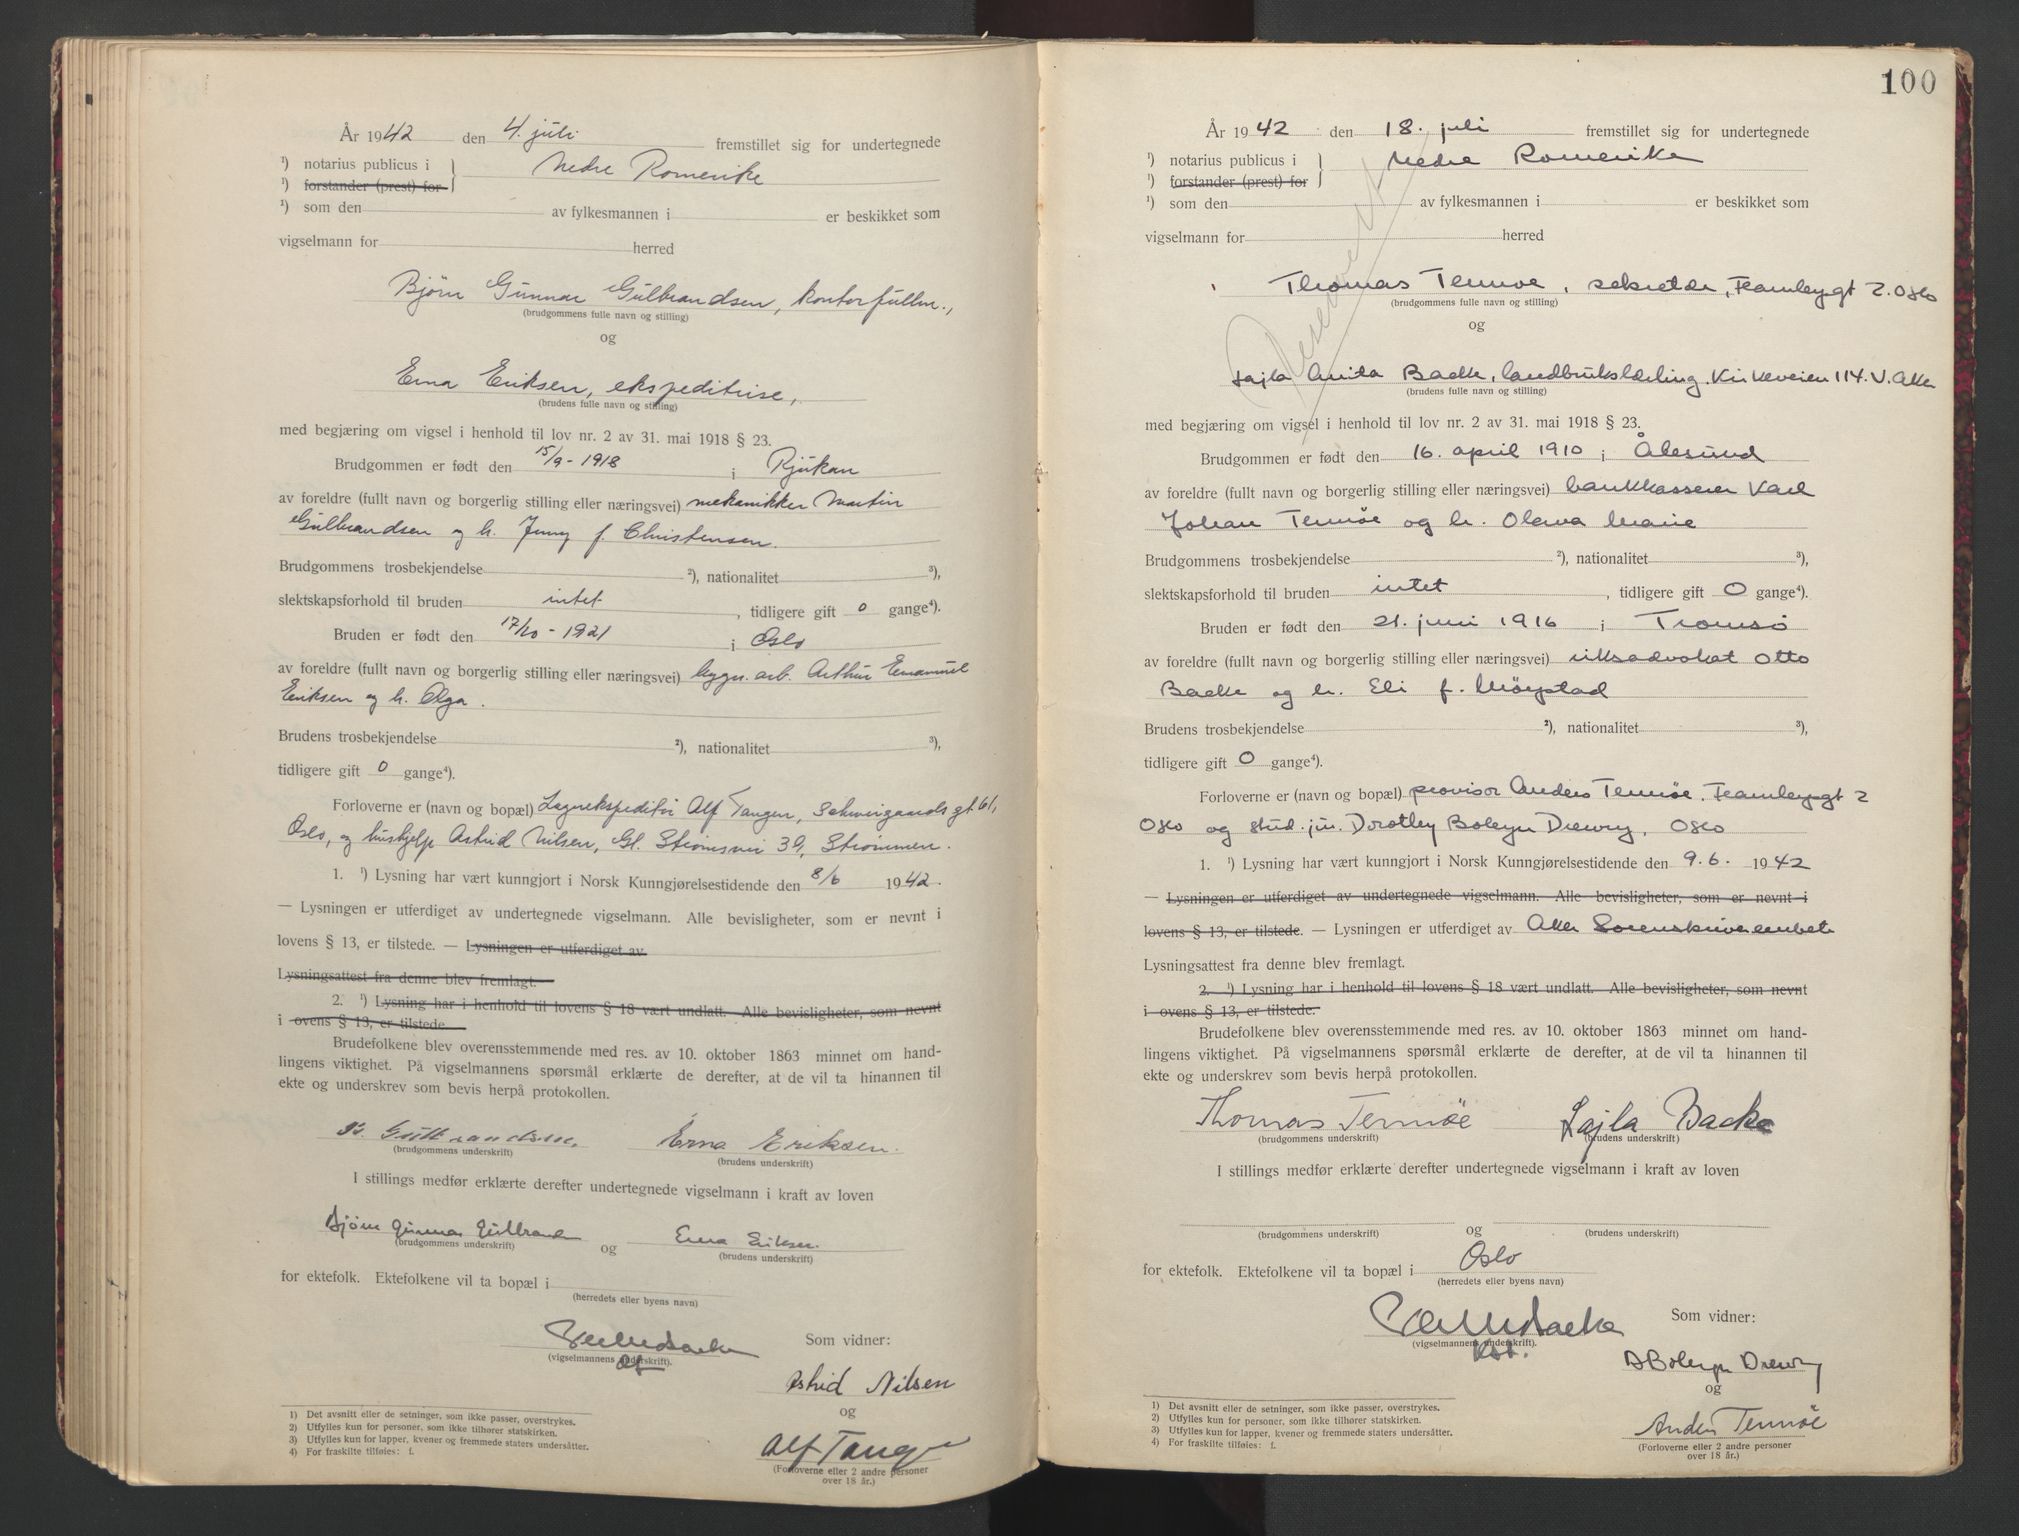 År 1942 den 4. juli fremstillet sig for undertegnede
¹) notarius publicus i } Nedre Romerike
¹) forstander (prest) for
²) som den av fylkesmannen i er beskikket som
vigselmann for herred
Bjørn Gunnar Gulbrandsen, kontorfullm.,
(brudgommens fulle navn og stilling)
og
Erna Eriksen, ekspeditrise,
(brudens fulle navn og stilling)
med begjæring om vigsel i henhold til lov nr. 2 av 31. mai 1918 § 23.
Brudgommen er født den 15/9 - 1918 i Rjukan
av foreldre (fullt navn og borgerlig stilling eller næringsvei) mekanikker Martin
Gulbrandsen og h. Jenny f. Christensen.
Brudgommens trosbekjendelse ²), nationalitet ³),
slektskapsforhold til bruden intet, tidligere gift 0 gange⁴).
Bruden er født den 17/10 - 1921 i Oslo
av foreldre (fullt navn og borgerlig stilling eller næringsvei) bygn. arb. Arthur Emanuel
Eriksen og h. Olga.
Brudens trosbekjendelse ²), nationalitet ³),
tidligere gift 0 gange⁴).
Forloverne er (navn og bopæl) Lagerekspeditør Alf Tangen, Schweigaards gt. 61,
Oslo, og hushjelp Astrid Nilsen, Gl. Strømsvei 39, Strømmen.
1. ¹) Lysning har vært kunngjort i Norsk Kunngjørelsestidende den 8/6 1942.
— Lysningen er utferdiget av undertegnede vigselmann. Alle bevisligheter, som er nevnt i
lovens § 13, er tilstede. — Lysningen er utferdiget av
Lysningsattest fra denne blev fremlagt.
2. ¹) Lysning har i henhold til lovens § 18 vært undlatt. Alle bevisligheter, som nevnt
i ovens § 13, er tilstede.
Brudefolkene blev overensstemmende med res. av 10. oktober 1863 minnet om hand-
lingens viktighet. På vigselmannens spørsmål erklærte de derefter, at de vil ta hinannen til
ekte og underskrev som bevis herpå protokollen.
B. Gulbrandsen. Erna Eriksen.
(brudgommens underskrift) (brudens underskrift)
I stillings medfør erklærte derefter undertegnede vigselmann i kraft av loven
Bjørn Gunnar Gulbrand og Erna Eriksen.
(brudgommens underskrift) (brudens underskrift)
for ektefolk. Ektefolkene vil ta bopæl i
(herredets eller byens navn)
Som vidner:
(vigselmannens underskrift).
Astrid Nilsen
og
Alf Tangen
(Forloverne eller 2 andre personer
over 18 år.)
1) Det avsnitt eller de setninger, som ikke passer, overstrykes.
2) Utfylles kun for personer, som ikke tilhører statskirken.
3) Utfylles kun for lapper, kvener og fremmede staters undersåtter.
4) For fraskilte tilføies: f.
100
År 1942 den 18. juli fremstillet sig for undertegnede
¹) notarius publicus i } Nedre Romerike
¹) forstander (prest) for
¹) som den av fylkesmannen i er beskikket som
vigselmann for herred
Reservert
Thomas Tennøe, sekretær, Framleysgt 2. Oslo
(brudgommens fulle navn og stilling)
og
Lajla Anita Backe, landbrukslærling. Kirkeveien 114. V. Aker
(brudens fulle navn og stilling)
med begjæring om vigsel i henhold til lov nr. 2 av 31. mai 1918 § 23.
Brudgommen er født den 16. april 1910 i Ålesund
av foreldre (fullt navn og borgerlig stilling eller næringsvei) bankkasserer Karl
Johan Tennøe og h. Olava Marie
Brudgommens trosbekjendelse ²), nationalitet ³),
slektskapsforhold til bruden intet, tidligere gift 0 gange⁴).
Bruden er født den 21. juni 1916 i Tromsø
av foreldre (fullt navn og borgerlig stilling eller næringsvei) riksadvokat Otto
Backe og h. Eli f. Møystad
Brudens trosbekjendelse ²), nationalitet ³),
tidligere gift 0 gange⁴).
Forloverne er (navn og bopæl) provisor Anders Tennøe. Framleysgt 2
Oslo og stud. jur. Dorothy Boleyn Drewry, Oslo
1. ¹) Lysning har vært kunngjort i Norsk Kunngjørelsestidende den 9.6. 1942
— Lysningen er utferdiget av undertegnede vigselmann. Alle bevisligheter, som er nevnt i
lovens § 13, er tilstede. — Lysningen er utferdiget av Aker Sorenskriverembete
Lysningsattest fra denne blev fremlagt.
2. ¹) Lysning har i henhold til lovens § 18 vært undlatt. Alle bevisligheter, som nevnt
i ovens § 13, er tilstede.
Brudefolkene blev overensstemmende med res. av 10. oktober 1863 minnet om hand-
lingens viktighet. På vigselmannens spørsmål erklærte de derefter, at de vil ta hinannen til
ekte og underskrev som bevis herpå protokollen.
Thomas Tennøe Lajla Backe
(brudgommens underskrift) (brudens underskrift)
I stillings medfør erklærte derefter undertegnede vigselmann i kraft av loven
og
(brudgommens underskrift) (brudens underskrift)
for ektefolk. Ektefolkene vil ta bopæl i Oslo
(herredets eller byens navn)
Som vidner:
(vigselmannens underskrift).
kst.
D Boleyn Drewry
og
Anders Tennøe
(Forloverne eller 2 andre personer
over 18 år.)
1) Det avsnitt eller de setninger, som ikke passer, overstrykes.
2) Utfylles kun for personer, som ikke tilhører statskirken.
3) Utfylles kun for lapper, kvener og fremmede staters undersåtter.
4) For fraskilte tilføies: f.